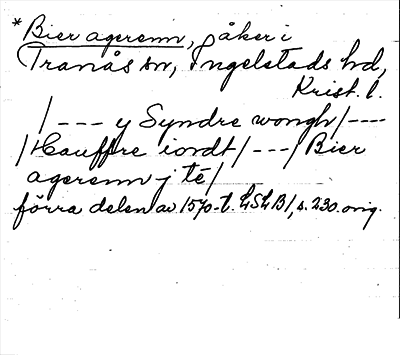 * Bier agerenn, åker i
Tranås sn, Ingelstads hd,
Krist. l.
/--- y Syndre wongh/----
/Hauffre iordt/---/Bier
agerenn j té/
förra delen av 1570-t. LSLB1, s. 230. orig.